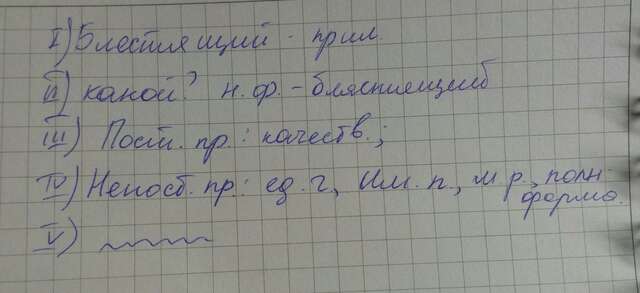 I) Блестящий - прил
II) какой? н.ф. - блястящий
III) Пост. пр.: качеств.;
IV) Непост. пр: ед.ч, Им.п., м.р., полн. форма.
V)